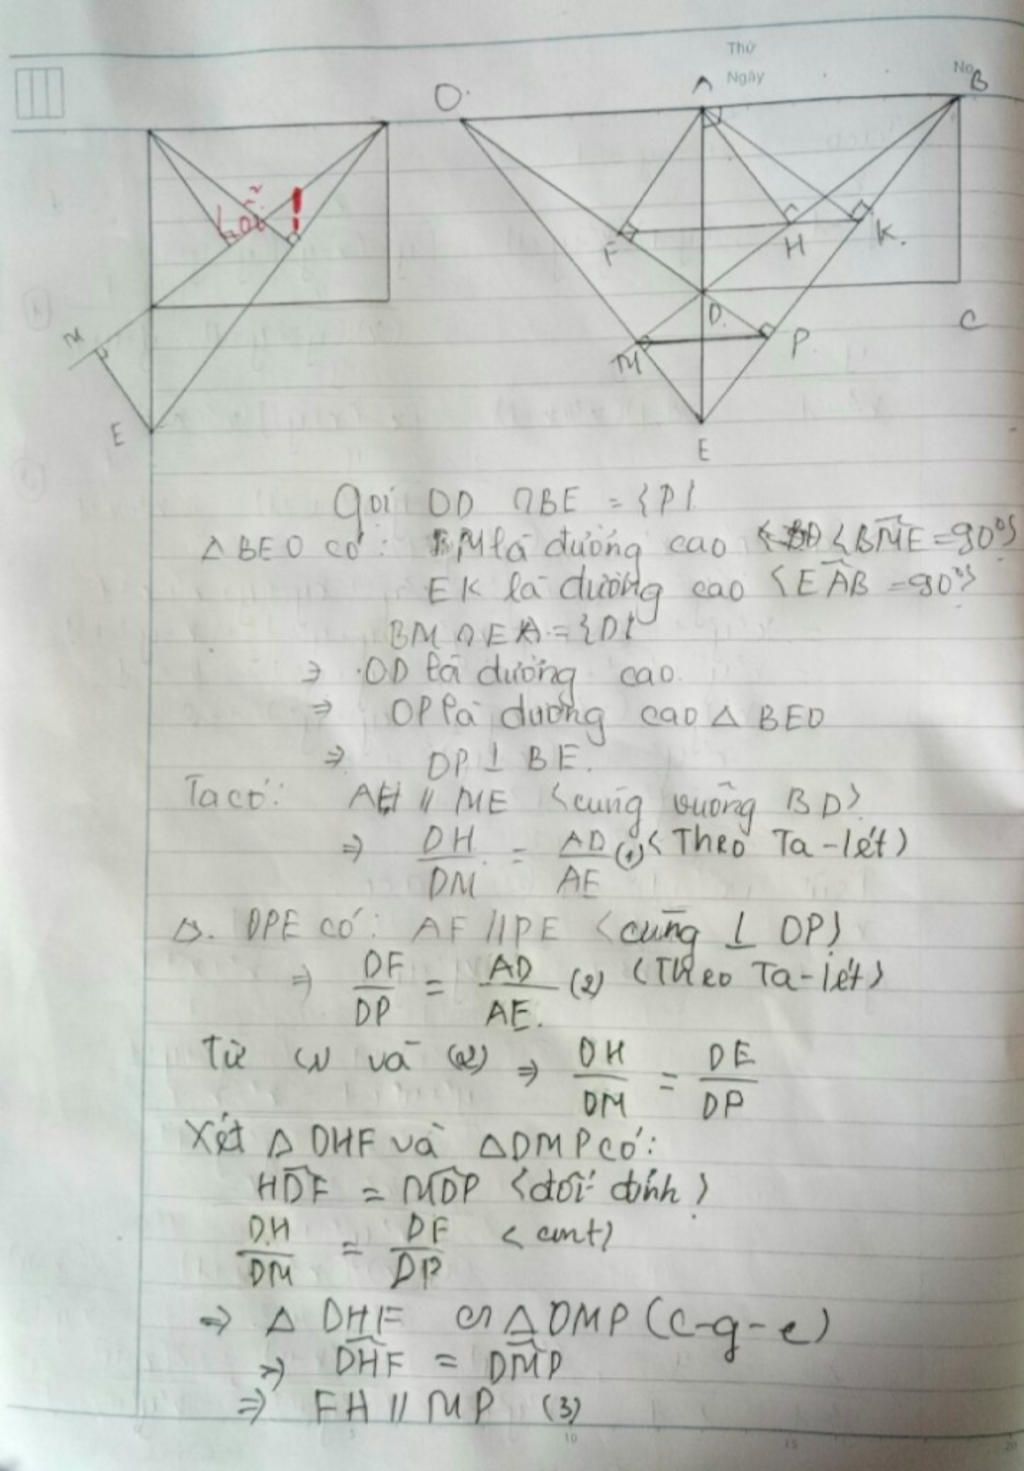 Thứ
Ngày
No
O
A
B
Lỗi !
F
H
K.
D.
C
M
P.
M
E
E
Gọi OD ∩ BE = {P}
△ BEO có: BM là đường cao <BM̂E = 90°>
EK là đường cao <EÂB = 90°>
BM ∩ EA = {D}
⇒ OD là đường cao.
⇒ OP là đường cao △ BEO
⇒ DP ⊥ BE.
Ta có: AH // ME <cùng vuông BD>
⇒ DH/DM = AD/AE (1) <Theo Ta-lét>
△. DPE có: AF // PE <cùng ⊥ OP>
⇒ DF/DP = AD/AE. (2) <Theo Ta-lét>
Từ (1) và (2) ⇒ DH/DM = DE/DP
Xét △ DHF và △DMP có:
HD̂F = MD̂P <đối đỉnh>
DH/DM = DF/DP <cmt>
⇒ △ DHF ∽ △ DMP (c-g-c)
⇒ DĤF = DM̂P
⇒ FH // MP (3)
5
10
15
20